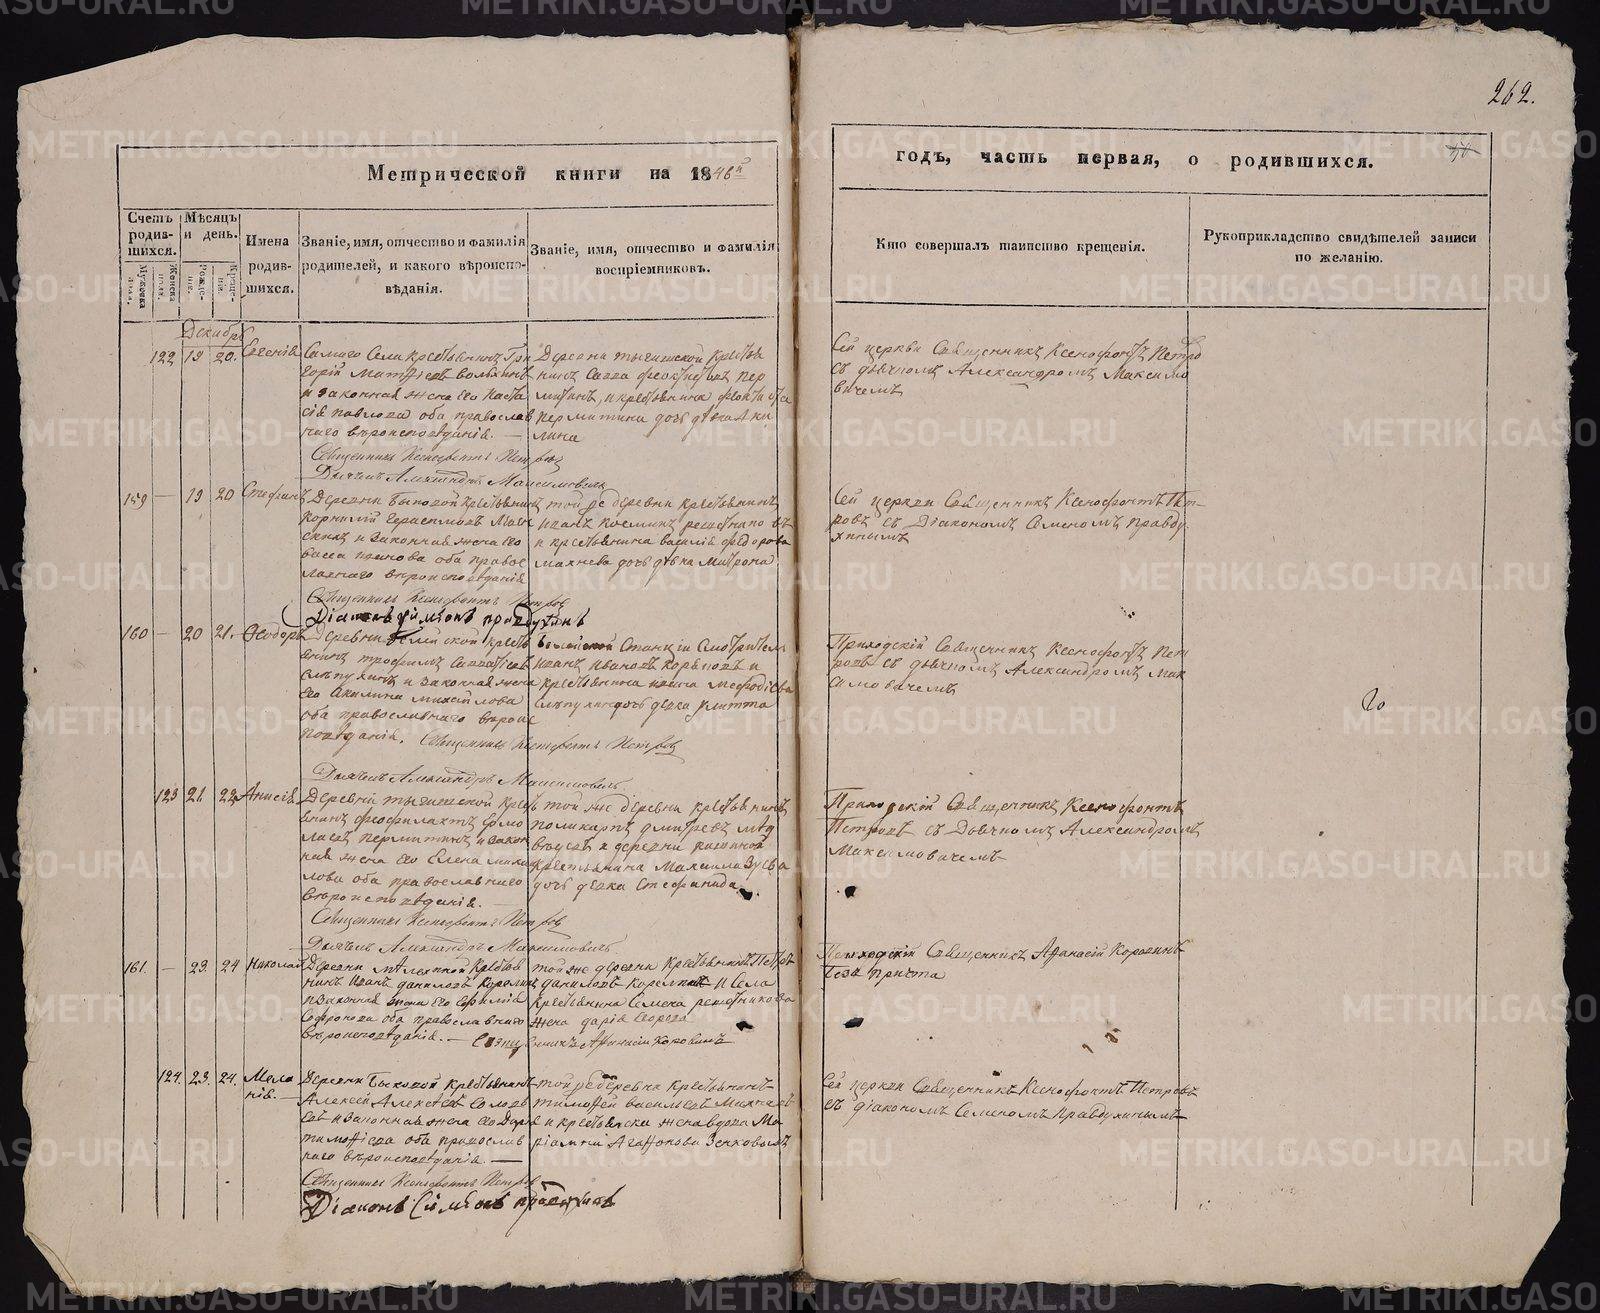 262.
Метрической книги на 1846й
годъ, часть первая, о родившихся.
Счетъ родив-шихся.
Мѣсяцъ и день.
Имена родив-шихся.
Званіе, имя, отчество и фамилія родителей, и какого вѣроиспо-вѣданія.
Званіе, имя, отчество и фамилія воспріемниковъ.
Кто совершалъ таинство крещенія.
Рукоприкладство свидѣтелей записи по желанію.
Мужеска пола.
Женска пола.
Рожде-нія.
Креще-нія.
Декабрь
122 19 20. Евгенія
Самаго Села крестьянинъ Гри
горій
и законная жена его Наста
сія Павлова оба православ
наго вѣроисповѣданія. —
Священникъ Ксенофонтъ Петровъ
Дьячекъ Александръ Максимовичь
Деревни крестья
нинъ Савва Феоктистовъ Пер
митинъ, и крестьянина
Пермитина дочь дѣвка Аки
лина
Сей церкви Священникъ Ксенофонтъ Петро
съ дьячкомъ Александромъ Максимо
вичемъ
159 — 19 20 Стефанъ
Деревни Быковой крестьянинъ
Корнилій
и законная жена его
Васса Иванова оба правос
лавнаго вѣроисповѣданія
Священникъ Ксенофонтъ Петровъ
Діаконъ Симіонъ Правдухинъ
той же деревни крестьянинъ
Иванъ Козминъ
и крестьянина Василія Федорова
Махнева дочь дѣвка Матрона
Сей церкви Священникъ Ксенофонтъ Пет-
ровъ съ Діакономъ Семеномъ Правду
хинымъ
160 — 20 21. Феодоръ
Деревни крестъ
янинъ Трофимъ Савватѣевъ
и законная жена
его Акилина Михайлова
оба православнаго вѣроис
повѣданія. Священникъ Ксенофонтъ Петровъ
Дьячекъ Александръ Максимовичь
Станціи Смотритель
Иванъ Ивановъ и
крестьянина Меѳодіева
дочь дѣвка Улитта
Приходскій Священникъ Ксенофонтъ Пет
ровъ съ дьячкомъ Александромъ Мак
симовичемъ
123 21. 22. Анисія
Деревни крестъ
янинъ Феофилактъ
Пермитинъ и закон
ная жена его Елена Михай
лова оба православнаго
вѣроисповѣданія. —
Священникъ Ксенофонтъ Петровъ
Дьячекъ Александръ Максимовичь
той же деревни крестьянинъ
Поликарпъ Дмитревъ Мед
вѣдевъ и деревни
крестьянина Максима Зуева
дочь дѣвка Стефанида
Приходскій Священникъ Ксенофонтъ
Петровъ съ Дьячкомъ Александромъ
Максимовичемъ
161. — 23. 24 Николай
Деревни крестья
нинъ Иванъ Даниловъ
и законная жена его Ефимія
Софронова оба православнаго
вѣроисповѣданія. — Священникъ Афанасій Коровинъ
той же деревни крестьянинъ Петръ
Даниловъ и Села
крестьянина Семена Решетникова
жена Дарія Егорова
Приходскій Священникъ Афанасій Коровинъ
безъ причта
124. 23. 24. Мела
нія. —
Деревни Быковой крестьянинъ
Алексѣй Алексѣевъ
и законная жена его Дарья
Тимоѳѣева оба православ
наго вѣроисповѣданія. —
Священникъ Ксенофонтъ Петровъ
Діаконъ Симіонъ Правдухинъ
той же деревни крестьянинъ
Тимоѳей Васильевъ Махневъ
и крестьянска жена вдова Ма
ріамна Агаѳонова
Сей церкви Священникъ Ксенофонтъ Петровъ
съ Діакономъ Семеномъ Правдухинымъ